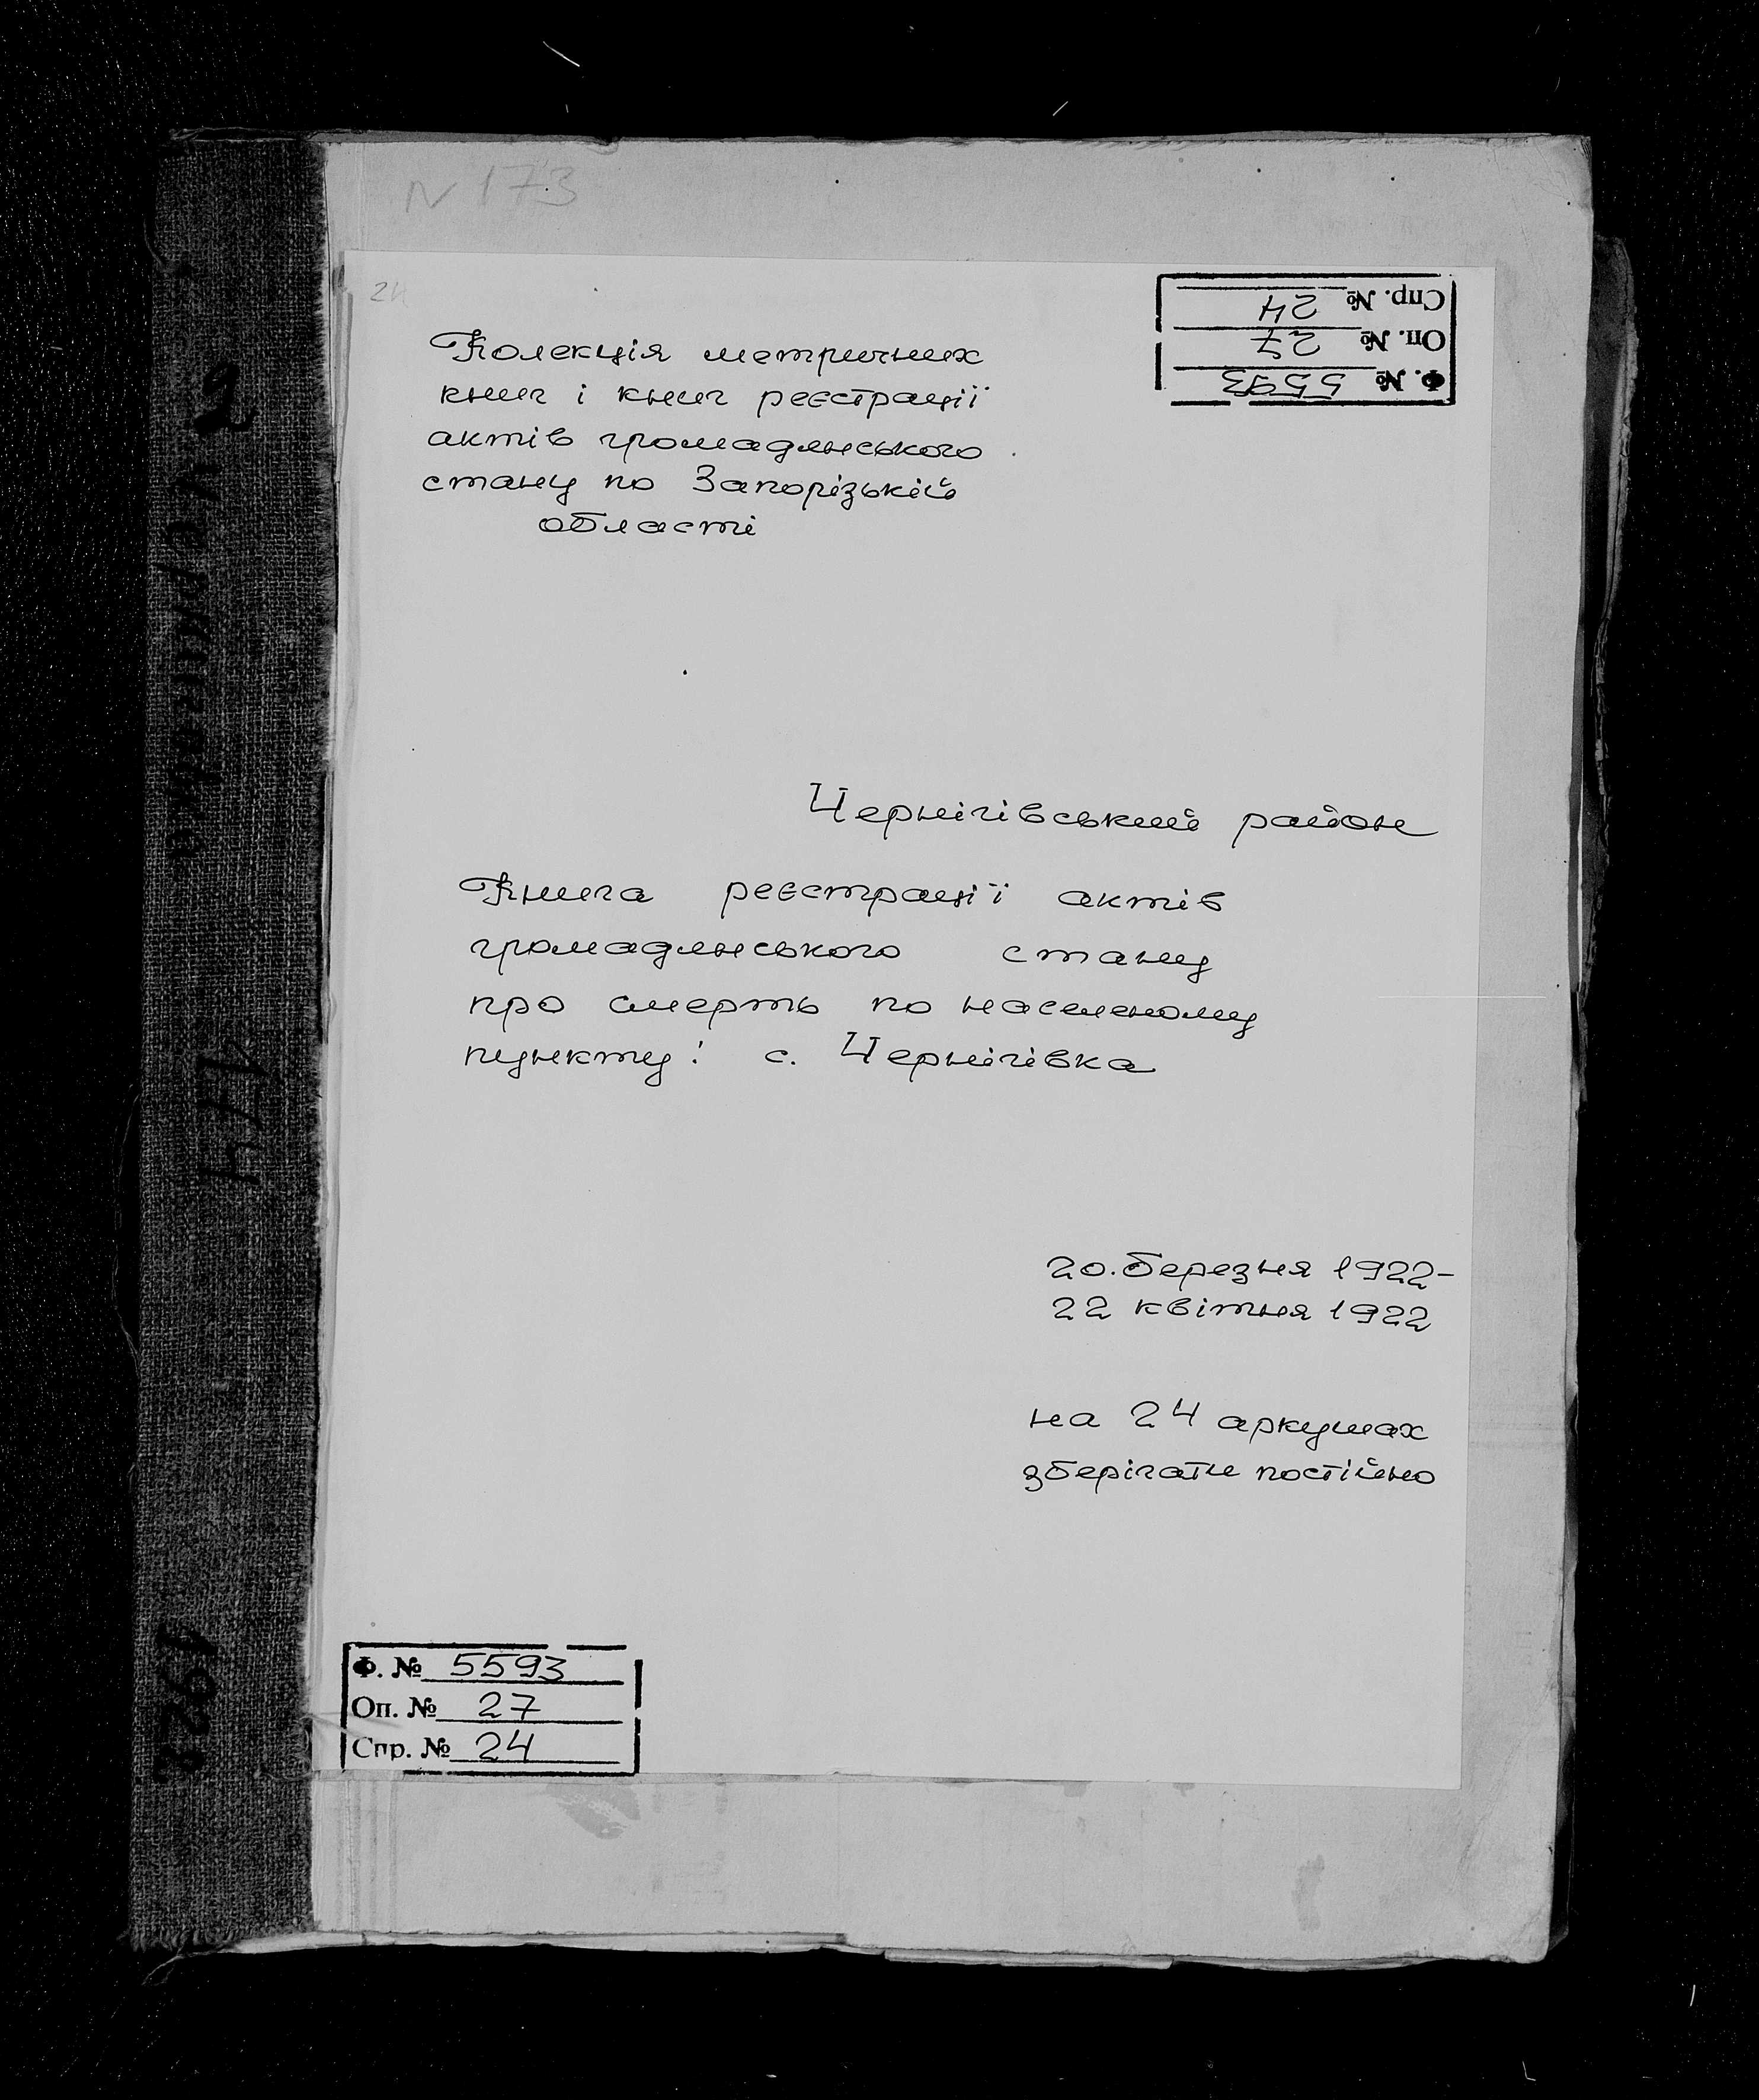 N 173
Спр. № 24
Оп. № 27
Ф. № 5593
Колекція метричних
книг і книг реєстрації
актів громадянського
стану по Запорізькій
області
Чернігівський район
Книга реєстрації актів
громадянського стану
про смерть по населеному
пункту: с. Чернігівка
20. березня 1922-
22 квітня 1922
на 24 аркушах
зберігати постійно
Ф. № 5593
Оп. № 27
Спр. № 24